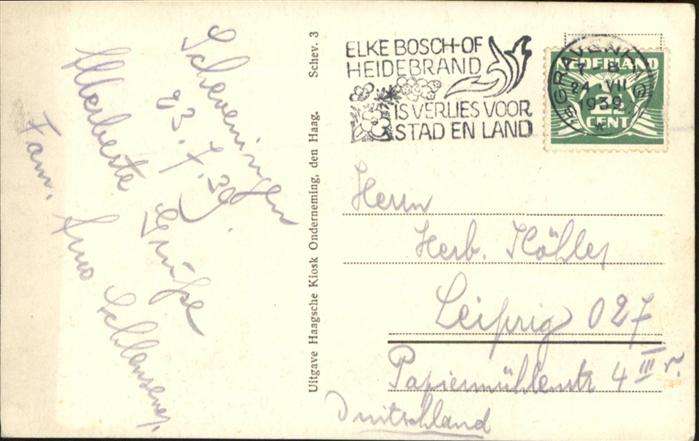 Scheveningen
23.7.39.
Allerbeste Grüße
Fam.
Uitgave Haagsche Kiosk Onderneming, den Haag. Schev. 3
ELKE BOSCH-OF
HEIDEBRAND
IS VERLIES VOOR
STAD EN LAND
'S GRAVENHAGE
24 VII
1939
NEDERLAND
CENT
Herrn
Herb. Köhler
Leipzig O27
Papiermühlenstr 4 III r.
Deutschland